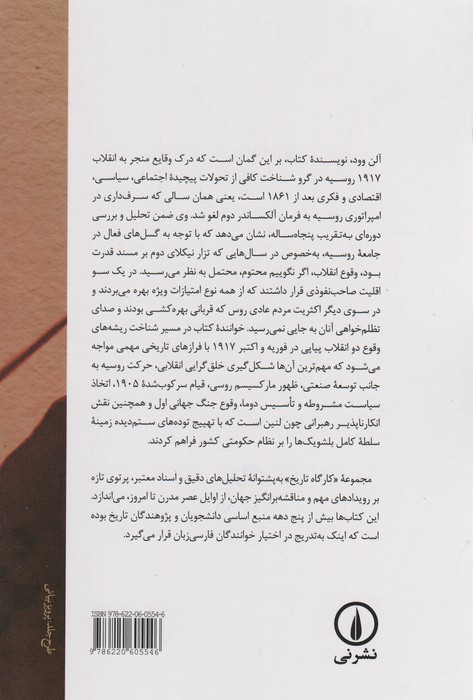 آلن وود، نویسندهٔ کتاب، بر این گمان است که درک وقایع منجر به انقلاب
۱۹۱۷ روسیه در گرو شناخت کافی از تحولات پیچیدهٔ اجتماعی، سیاسی،
اقتصادی و فکری بعد از ۱۸۶۱ است، یعنی همان سالی که سرف‌داری در
امپراتوری روسیه به فرمان آلکساندر دوم لغو شد. وی ضمن تحلیل و بررسی
دوره‌ای به‌تقریب پنجاه‌ساله، نشان می‌دهد که با توجه به گسل‌های فعال در
جامعهٔ روسیه، به‌خصوص در سال‌هایی که تزار نیکلای دوم بر مسند قدرت
بود، وقوع انقلاب، اگر نگوییم محتوم، محتمل به نظر می‌رسید. در یک سو
اقلیت صاحب‌نفوذی قرار داشتند که از همه نوع امتیازات ویژه بهره می‌بردند و
در سوی دیگر اکثریت مردم عادی روس که قربانی بهره‌کشی بودند و صدای
تظلم‌خواهی آنان به جایی نمی‌رسید. خوانندهٔ کتاب در مسیر شناخت ریشه‌های
وقوع دو انقلاب پیاپی در فوریه و اکتبر ۱۹۱۷ با فرازهای تاریخی مهمی مواجه
می‌شود که مهم‌ترین آن‌ها شکل‌گیری خلق‌گرایی انقلابی، حرکت روسیه به
جانب توسعهٔ صنعتی، ظهور مارکسیسم روسی، قیام سرکوب‌شدهٔ ۱۹۰۵، اتخاذ
سیاست مشروطه و تأسیس دوما، وقوع جنگ جهانی اول و همچنین نقش
انکارناپذیر رهبرانی چون لنین است که با تهییج توده‌های ستم‌دیده زمینهٔ
سلطهٔ کامل بلشویک‌ها را بر نظام حکومتی کشور فراهم کردند.
مجموعهٔ «کارگاه تاریخ» به‌پشتوانهٔ تحلیل‌های دقیق و اسناد معتبر، پرتوی تازه
بر رویدادهای مهم و مناقشه‌برانگیز جهان، از اوایل عصر مدرن تا امروز، می‌اندازد.
این کتاب‌ها بیش از پنج دهه منبع اساسی دانشجویان و پژوهندگان تاریخ بوده
است که اینک به‌تدریج در اختیار خوانندگان فارسی‌زبان قرار می‌گیرد.
ISBN 978-622-06-0554-6
9 786220 605546
نشرنی
طرح جلد: پرویز بیانی